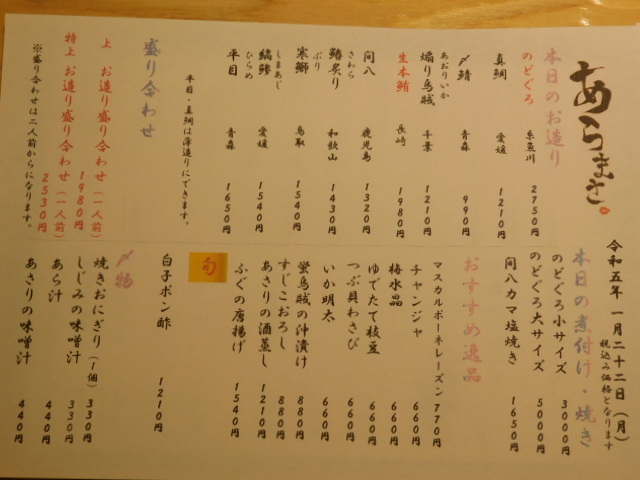 あらまさ
令和五年 一月二十二日 (月)
税込み価格となります
本日のお造り
のどぐろ 糸魚川 2750円
真鯛 愛媛 1210円
〆鯖 青森 990円
あおりいか
煽り烏賊 千葉 1210円
生本鮪 長崎 1980円
間八 鹿児島 1320円
さわら
鰆炙り 和歌山 1430円
ぶり
寒鰤 鳥取 1540円
しまあじ
縞鯵 愛媛 1540円
ひらめ
平目 青森 1650円
平目・真鯛は薄造りにできます。
盛り合わせ
上 お造り盛り合わせ(一人前) 1980円
特上 お造り盛り合わせ(一人前) 2530円
※盛り合わせは二人前からになります。
本日の煮付け・焼き
のどぐろ小サイズ 3000円
のどぐろ大サイズ 5000円
間八カマ塩焼き 1650円
おすすめ逸品
マスカルポーネレーズン 770円
チャンジャ 660円
梅水晶 660円
ゆでたて枝豆 660円
つぶ貝わさび 660円
いか明太 660円
蛍烏賊の沖漬け 880円
すじこおろし 880円
あさりの酒蒸し 1210円
ふぐの唐揚げ 1540円
旬
白子ポン酢 1210円
〆物
焼きおにぎり(1個) 330円
しじみの味噌汁 330円
あら汁 440円
あさりの味噌汁 440円